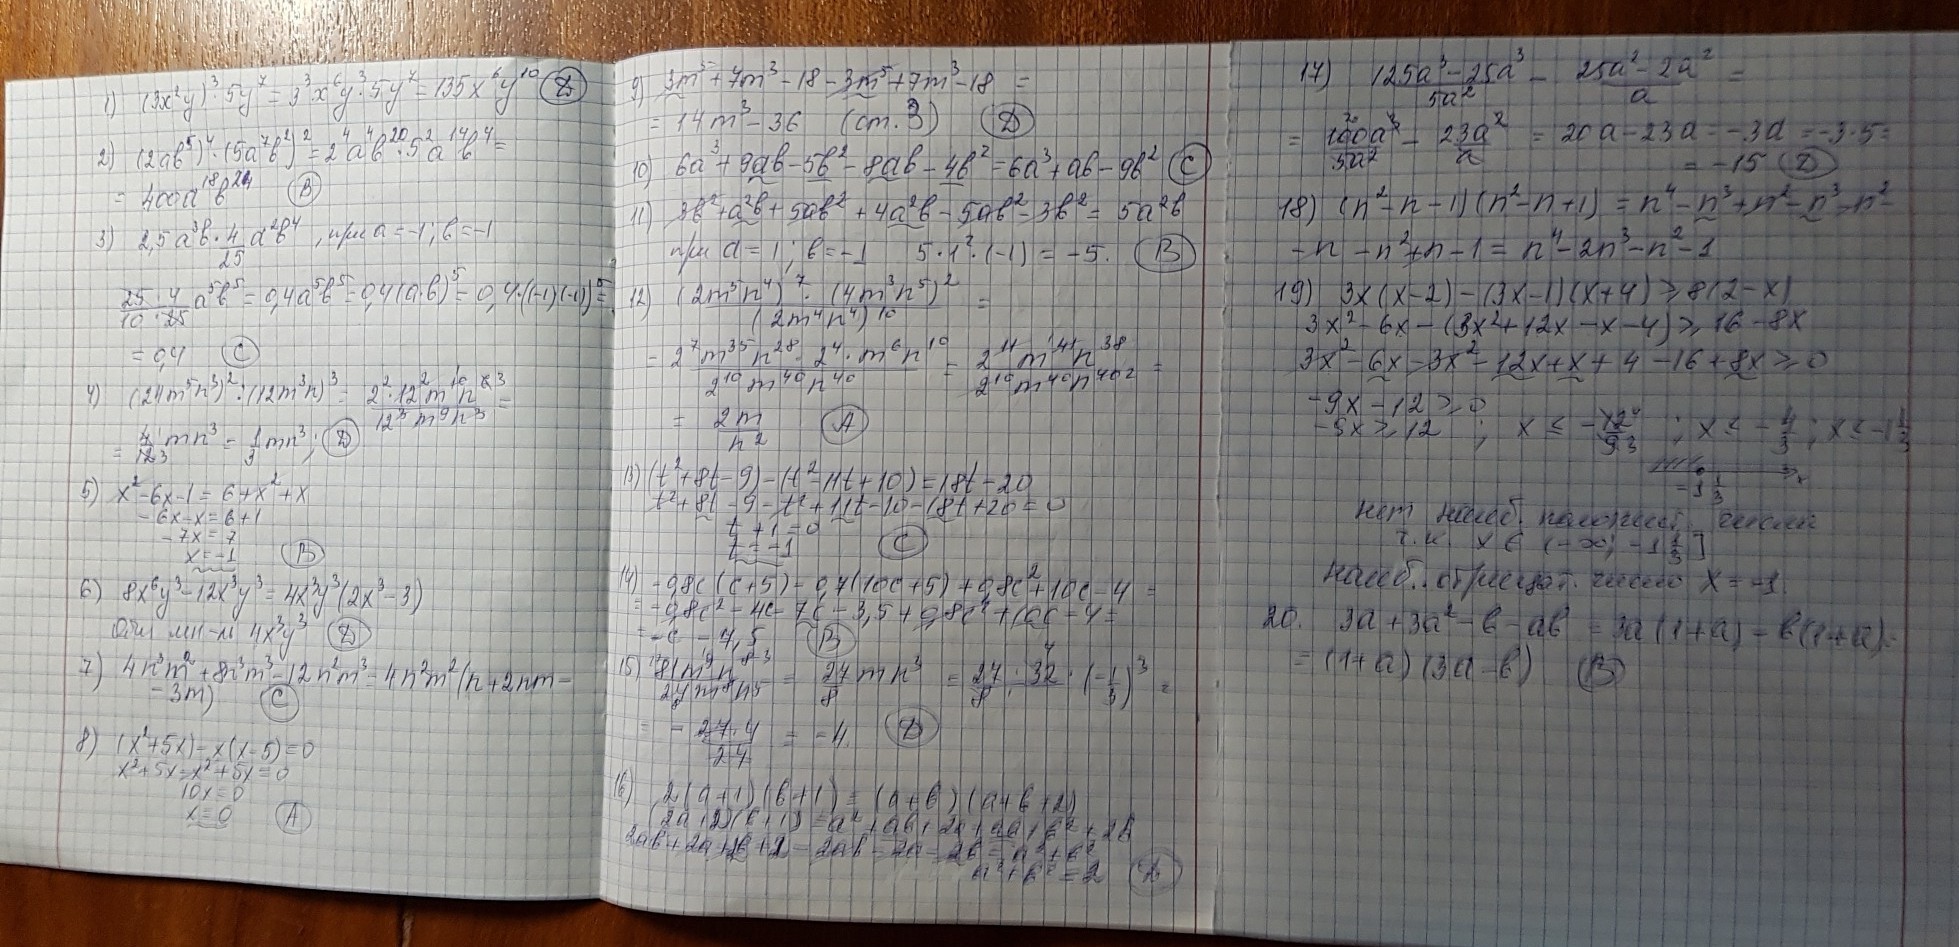 1) (3x²y)³·5y⁷=3³x⁶y³·5y⁷=135x⁶y¹⁰ (D)
2) (2ab⁵)⁴·(5a⁷b²)²=2⁴a⁴b²⁰·5²a¹⁴b⁴=
= 400a¹⁸b²⁴ (B)
3) 2,5a³b·4/25 a²b⁴, при a=-1; b=-1
25·4/10·25 a⁵b⁵=0,4a⁵b⁵=0,4(a·b)⁵=0,4·((-1)(-1))⁵=
=0,4 (C)
4) (24m⁵n³)²:(12m³n)³= 2²·12²m¹⁰n⁶/12³m⁹n³ =
= 4/12 mn³= 1/3 mn³; (D)
5) x²-6x-1=6+x²+x
-6x-x=6+1
-7x=7
x=-1 (B)
6) 8x⁶y³-12x³y³=4x³y³(2x³-3)
Общ мн-ль 4x³y³ (D)
7) 4n³m²+8n³m³-12n²m³=4n²m²(n+2nm-
-3m) (C)
8) (x²+5x)-x(x-5)=0
x²+5x-x²+5x=0
10x=0
x=0 (A)
9) 3m⁵+7m³-18-3m⁵+7m³-18 =
= 14m³-36 (ст.3) (D)
10) 6a³+9ab-5b²-8ab-4b²=6a³+ab-9b² (C)
11) 3b²+a²b+5ab²+4a²b-5ab²-3b²= 5a²b
при a=1; b=-1 5·1²·(-1)=-5. (B)
12) (2m⁵n⁴)⁷·(4m³n⁵)²/(2m⁴n⁴)¹⁰ =
= 2⁷m³⁵n²⁸·2⁴·m⁶n¹⁰/2¹⁰m⁴⁰n⁴⁰ = 2¹¹m⁴¹n³⁸/2¹⁰m⁴⁰n⁴⁰ =
= 2m/n² (A)
13) (t²+8t-9)-(t²-11t+10)=18t-20
t²+8t-9-t²+11t-10-18t+20=0
t+1=0
t=-1 (C)
14) -0,8c(c+5)-0,7(10c+5)+0,8c²+10c-4 =
=-0,8c²-4c-7c-3,5+0,8c²+10c-4=
=-c-7,5 (B)
15) 81m⁹n⁸/24m⁸n⁵ = 27/8 mn³ = 27/8·32·(-1/3)³ =
= - 27·4/27 = -4. (D)
16) 2(a+1)(b+1)=(a+b)(a+b+2)
(2a+2)(b+1)=a²+ab+2a+ab+b²+2b
2ab+2a+2b+2-2ab-2a-2b=a²+b²
a²+b²=2 (D)
17) 125a³-25a³/5a² - 25a²-2a²/a =
= 100a³/5a² - 23a²/a = 20a-23a=-3a=-3·5=
= -15 (D)
18) (n²-n-1)(n²-n+1)=n⁴-n³+n²-n³+n²-
-n-n²+n-1=n⁴-2n³-n²-1
19) 3x(x-2)-(3x-1)(x+4)≥8(2-x)
3x²-6x-(3x²+12x-x-4)≥16-8x
3x²-6x-3x²-12x+x+4-16+8x≥0
-9x-12≥0
-9x≥12; x≤-12/9; x≤-4/3; x≤-1 1/3
-1 1/3 x
нет наиб. положит. числа
т.к. x∈(-∞; -1 1/3]
наиб. отрицат. число x=-1.
20. 3a+3a²-b-ab=3a(1+a)-b(1+a)=
=(1+a)(3a-b) (B)